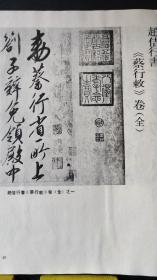 趙佶行書
《蔡行敕》卷(全)
敕蔡行省所上
劄子辭免領殿中
趙佶行書《蔡行敕》卷(全)之一